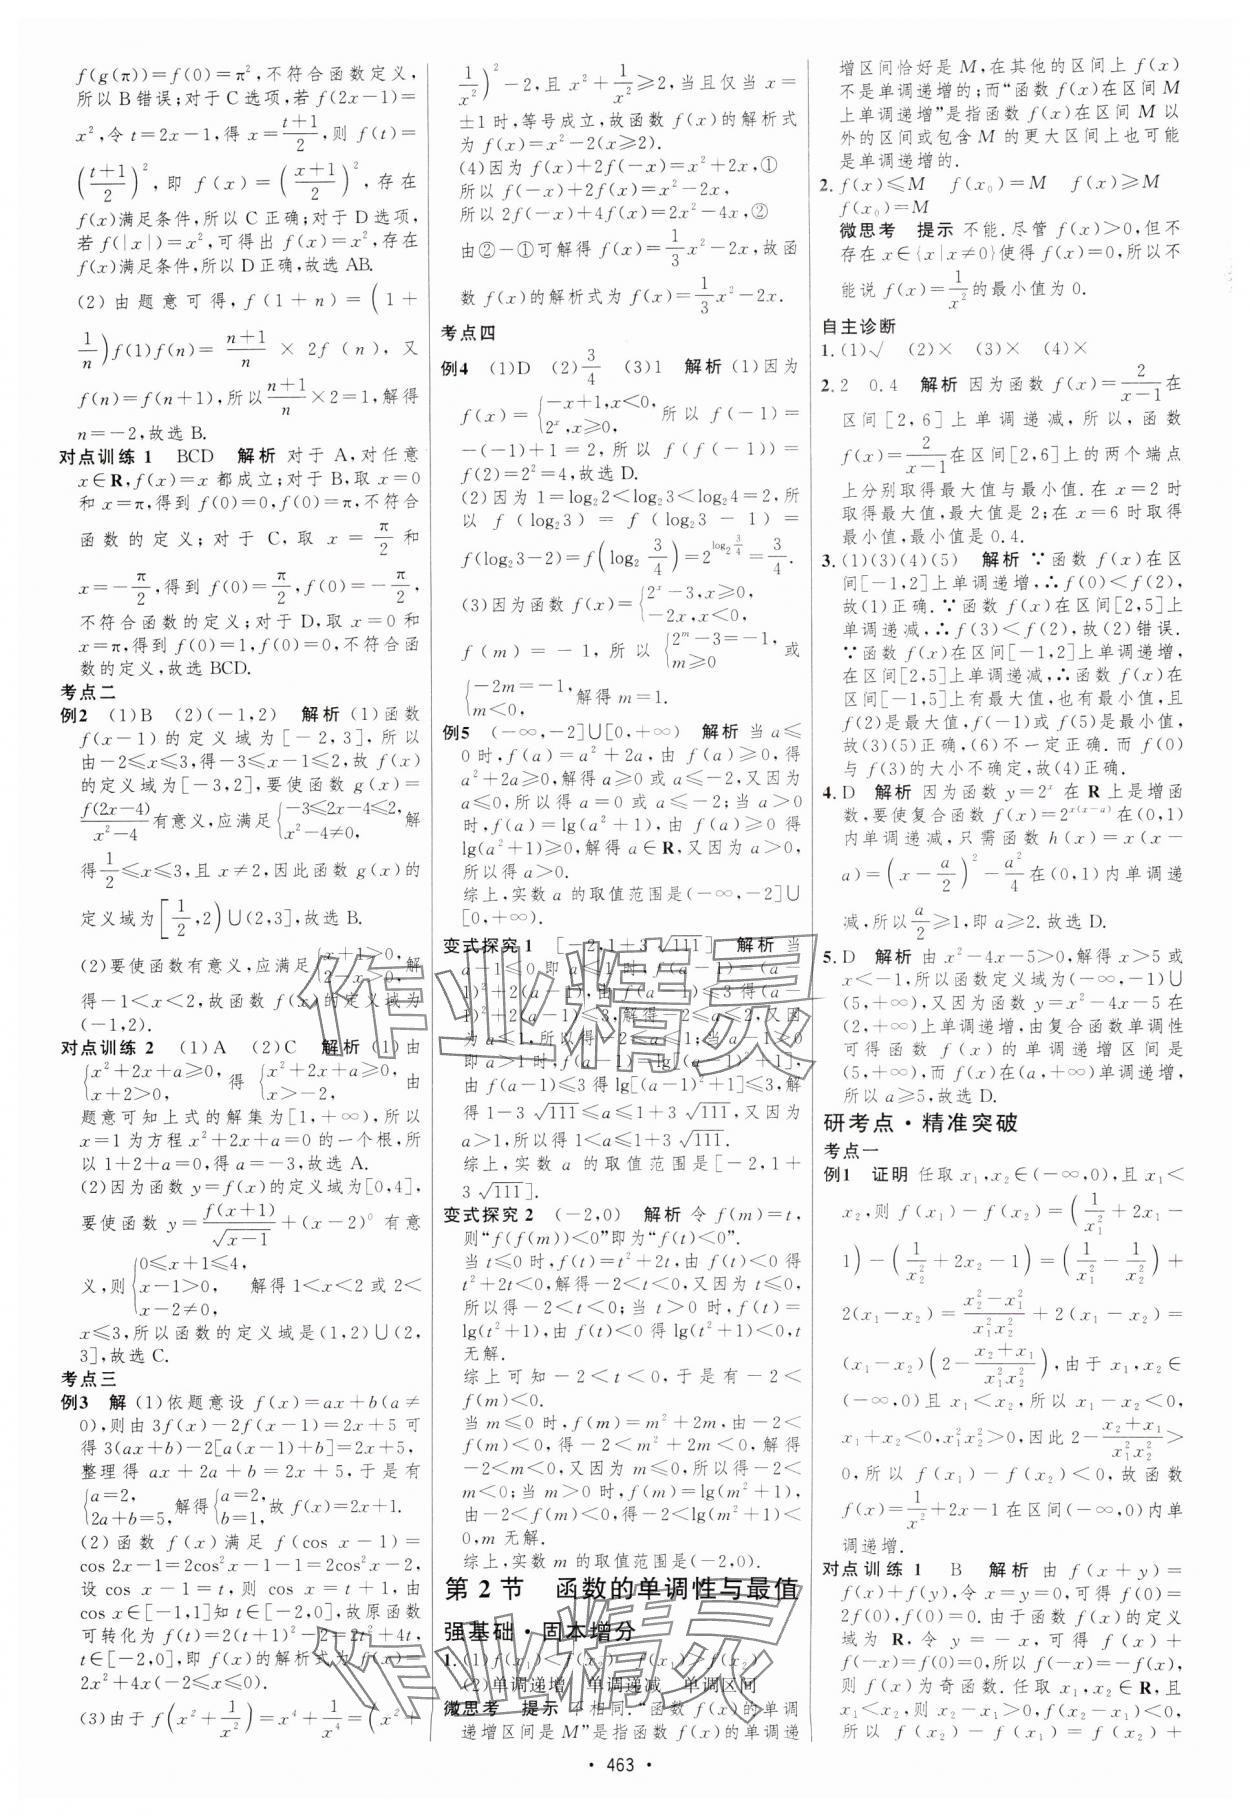 f(g(π))=f(0)=π²,不符合函数定义,
所以 B 错误;对于 C 选项,若 f(2x-1)=
x²,令 t=2x-1,得 x=(t+1)/2,则 f(t)=
((t+1)/2)²,即 f(x)=((x+1)/2)²,存在
f(x)满足条件,所以 C 正确;对于 D 选项,
若 f(|x|)=x²,可得出 f(x)=x²,存在
f(x)满足条件,所以 D 正确,故选 AB.
(2)由题意可得,f(1+n)=(1+
1/n)f(1)f(n)=(n+1)/n×2f(n),又
f(n)=f(n+1),所以(n+1)/n×2=1,解得
n=-2,故选 B.
对点训练 1 BCD 解析 对于 A,对任意
x∈R,f(x)=x 都成立;对于 B,取 x=0
和 x=π,得到 f(0)=0,f(0)=π,不符合
函数的定义;对于 C,取 x=π/2 和
x=-π/2,得到 f(0)=π/2,f(0)=-π/2,
不符合函数的定义;对于 D,取 x=0 和
x=π,得到 f(0)=1,f(0)=0,不符合函
数的定义,故选 BCD.
考点二
例2 (1)B (2)(-1,2) 解析 (1)函数
f(x-1)的定义域为[-2,3],所以
由-2≤x≤3,得-3≤x-1≤2,故 f(x)
的定义域为[-3,2],要使函数 g(x)=
f(2x-4)/(x²-4)有意义,应满足{-3≤2x-4≤2, x²-4≠0,解
得1/2≤x≤3,且 x≠2,因此函数 g(x)的
定义域为[1/2,2)∪(2,3],故选 B.
(2)要使函数有意义,应满足{x+1>0, 2-x>0,解
得-1<x<2,故函数 f(x)的定义域为
(-1,2).
对点训练 2 (1)A (2)C 解析 (1)由
{x²+2x+a≥0, x+2>0, 得 {x²+2x+a≥0, x>-2, 由
题意可知上式的解集为[1,+∞),所以
x=1 为方程 x²+2x+a=0 的一个根,所
以 1+2+a=0,得 a=-3,故选 A.
(2)因为函数 y=f(x)的定义域为[0,4],
要使函数 y=f(x+1)/√(x-1)+(x-2)⁰ 有意
义,则{0≤x+1≤4, x-1>0, x-2≠0, 解得 1<x<2 或 2<
x≤3,所以函数的定义域是(1,2)∪(2,
3],故选 C.
考点三
例3 解 (1)依题意设 f(x)=ax+b(a≠
0),则由 3f(x)-2f(x-1)=2x+5 可
得 3(ax+b)-2[a(x-1)+b]=2x+5,
整理得 ax+2a+b=2x+5,于是有
{a=2, 2a+b=5, 解得{a=2, b=1, 故 f(x)=2x+1.
(2)函数 f(x)满足 f(cos x-1)=
cos 2x-1=2cos²x-1-1=2cos²x-2,
设 cos x-1=t,则 cos x=t+1,由
cos x∈[-1,1]知 t∈[-2,0],故原函数
可转化为 f(t)=2(t+1)²-2=2t²+4t,
t∈[-2,0],即 f(x)的解析式为 f(x)=
2x²+4x(-2≤x≤0).
(3)由于 f(x²+1/x²)=x⁴+1/x⁴=(x²+
1/x²)²-2,且 x²+1/x²≥2,当且仅当 x=
±1 时,等号成立,故函数 f(x)的解析式
为 f(x)=x²-2(x≥2).
(4)因为 f(x)+2f(-x)=x²+2x,①
所以 f(-x)+2f(x)=x²-2x,
所以 2f(-x)+4f(x)=2x²-4x,②
由②-①可解得 f(x)=1/3x²-2x,故函
数 f(x)的解析式为 f(x)=1/3x²-2x.
考点四
例4 (1)D (2)3/4 (3)1 解析 (1)因为
f(x)={-x+1,x<0, 2ˣ,x≥0, 所以 f(-1)=
-(-1)+1=2,所以 f(f(-1))=
f(2)=2²=4,故选 D.
(2)因为 1=log₂2<log₂3<log₂4=2,所
以 f(log₂3)=f(log₂3-1)=
f(log₂3-2)=f(log₂ 3/4)=2^(log₂ 3/4)=3/4.
(3)因为函数 f(x)={2ˣ-3,x≥0, -2x,x<0,
f(m)=-1,所以{2ᵐ-3=-1, m≥0 或
{-2m=-1, m<0, 解得 m=1.
例5 (-∞,-2]∪[0,+∞) 解析 当 a≤
0 时,f(a)=a²+2a,由 f(a)≥0,得
a²+2a≥0,解得 a≥0 或 a≤-2,又因为
a≤0,所以得 a=0 或 a≤-2;当 a>0
时,f(a)=lg(a²+1),由 f(a)≥0 得
lg(a²+1)≥0,解得 a∈R,又因为 a>0,
所以得 a>0.
综上,实数 a 的取值范围是(-∞,-2]∪
[0,+∞).
变式探究 1 [-2,1+3√111] 解析 当
a-1≤0 即 a≤1 时,f(a-1)=(a-
1)²+2(a-1),由 f(a-1)≤3 得(a-
1)²+2(a-1)≤3,解得-2≤a≤2,又因
为 a≤1,所以得-2≤a≤1;当 a-1>0
即 a>1 时,f(a-1)=lg[(a-1)²+1],
由 f(a-1)≤3 得 lg[(a-1)²+1]≤3,解
得 1-3√111≤a≤1+3√111,又因为
a>1,所以得 1<a≤1+3√111.
综上,实数 a 的取值范围是[-2,1+
3√111].
变式探究 2 (-2,0) 解析 令 f(m)=t,
则“f(f(m))<0”即为“f(t)<0”.
当 t≤0 时,f(t)=t²+2t,由 f(t)<0 得
t²+2t<0,解得-2<t<0,又因为 t≤0,
所以得-2<t<0;当 t>0 时,f(t)=
lg(t²+1),由 f(t)<0 得 lg(t²+1)<0,t
无解.
综上可知-2<t<0,即-2<
f(m)<0.
当 m≤0 时,f(m)=m²+2m,由-2<
f(m)<0,得-2<m²+2m<0,解得
-2<m<0,又因为 m≤0,所以得-2<
m<0;当 m>0 时,f(m)=lg(m²+1),
由-2<f(m)<0,得-2<lg(m²+1)
<0,m 无解.
综上,实数 m 的取值范围是(-2,0).
第 2 节 函数的单调性与最值
强基础·固本增分
1.(1)f(x₁)<f(x₂) f(x₁)>f(x₂)
(2)单调递增 单调递减 单调区间
微思考 提示 不相同.“函数 f(x)的单调
递增区间是 M”是指函数 f(x)的单调递
增区间恰好是 M,在其他的区间上 f(x)
不是单调递增的;而“函数 f(x)在区间 M
上单调递增”是指函数 f(x)在区间 M 以
外的区间或包含 M 的更大区间上也可能
是单调递增的.
2. f(x)≤M f(x₀)=M f(x)≥M
f(x₀)=M
微思考 提示 不能.尽管 f(x)>0,但不
存在 x∈{x|x≠0}使得 f(x)=0,所以不
能说 f(x)=1/x²的最小值为 0.
自主诊断
1.(1)√ (2)× (3)× (4)×
2.2 0.4 解析 因为函数 f(x)=2/(x-1)在
区间[2,6]上单调递减,所以,函数
f(x)=2/(x-1)在区间[2,6]上的两个端点
上分别取得最大值与最小值.在 x=2 时
取得最大值,最大值是 2;在 x=6 时取得
最小值,最小值是 0.4.
3.(1)(3)(4)(5) 解析 ∵函数 f(x)在区
间[-1,2]上单调递增,∴f(0)<f(2),
故(1)正确.∵函数 f(x)在区间[2,5]上
单调递减,∴f(3)<f(2),故(2)错误.
∵函数 f(x)在区间[-1,2]上单调递增,
在区间[2,5]上单调递减,∴f(x)在区间
[-1,5]上有最大值,也有最小值,且
f(2)是最大值,f(-1)或 f(5)是最小值,
故(3)(5)正确,(6)不一定正确.而 f(0)
与 f(3)的大小不确定,故(4)正确.
4. D 解析 因为函数 y=2ˣ 在 R 上是增函
数,要使复合函数 f(x)=2^(x(x-a))在(0,1)
内单调递减,只需函数 h(x)=x(x-
a)=(x-a/2)²-a²/4在(0,1)内单调递
减,所以a/2≥1,即 a≥2.故选 D.
5. D 解析 由 x²-4x-5>0,解得 x>5 或
x<-1,所以函数定义域为(-∞,-1)∪
(5,+∞),又因为函数 y=x²-4x-5 在
(2,+∞)上单调递增,由复合函数单调性
可得函数 f(x)的单调递增区间是
(5,+∞),而 f(x)在(a,+∞)单调递增,
所以 a≥5,故选 D.
研考点·精准突破
考点一
例1 证明 任取 x₁,x₂∈(-∞,0),且 x₁<
x₂,则 f(x₁)-f(x₂)=(1/x₁²+2x₁-
1)-(1/x₂²+2x₂-1)=(1/x₁²-1/x₂²)+
2(x₁-x₂)=(x₂²-x₁²)/(x₁²x₂²)+2(x₁-x₂)=
(x₁-x₂)(2-(x₂+x₁)/(x₁²x₂²)),由于 x₁,x₂∈
(-∞,0)且 x₁<x₂,所以 x₁-x₂<0,
x₁+x₂<0,x₁²x₂²>0,因此 2-(x₂+x₁)/(x₁²x₂²)>
0,所以 f(x₁)-f(x₂)<0,故函数
f(x)=1/x²+2x-1 在区间(-∞,0)内单
调递增.
对点训练 1 B 解析 由 f(x+y)=
f(x)+f(y),令 x=y=0,可得 f(0)=
2f(0),所以 f(0)=0.由于函数的定义
域为 R,令 y=-x,可得 f(x)+
f(-x)=f(0)=0,所以 f(-x)=-f(x),
则 f(x)为奇函数.任取 x₁,x₂∈R,且
x₁<x₂,则 x₂-x₁>0,f(x₂-x₁)<0,
所以 f(x₂)-f(x₁)=f(x₂)+
· 463 ·
作业精灵
作业精灵